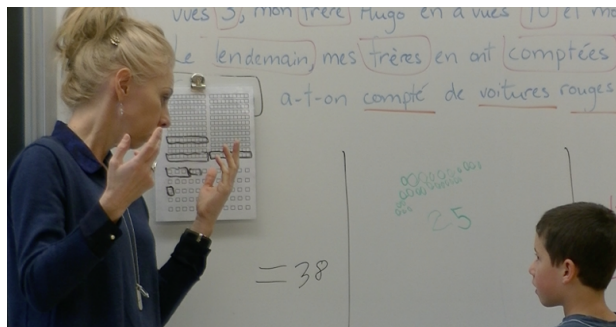 vues 5, mon frère Hugo en a vues 10 et me
Le lendemain, mes frères en ont comptées
a-t-on compté de voitures rouges
= 38
25